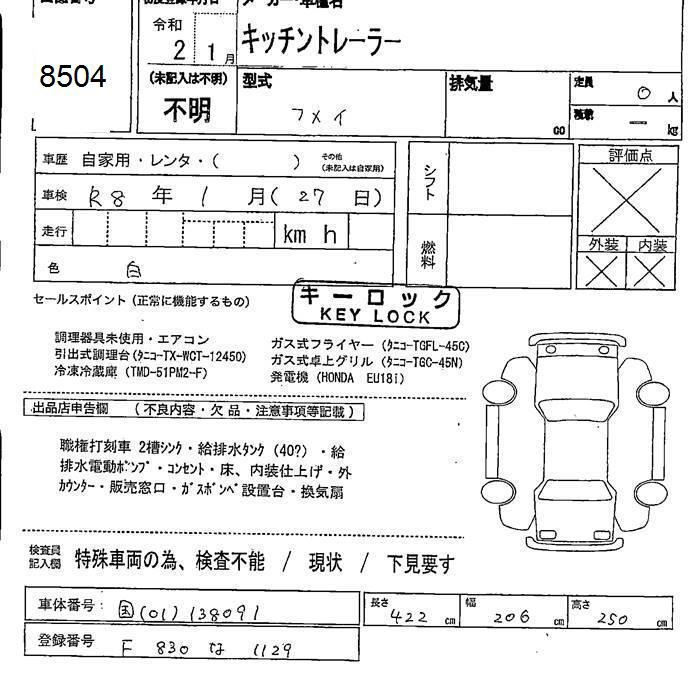 メーカー・車種名
8504
令和
2 1月
キッチントレーラー
(未記入は不明)
不明
型式
フメイ
排気量
CC
定員
0 人
積載
ー kg
車歴 自家用・レンタ・( ) その他
(未記入は自家用)
車検 R8 年 1 月( 27 日)
走行 km h
色 白
シフト
燃料
評価点
外装 内装
キーロック
KEY LOCK
セールスポイント (正常に機能するもの)
調理器具未使用・エアコン
引出式調理台(ﾀﾆｺｰTX-WCT-12450)
冷凍冷蔵庫 (TMD-51PM2-F)
ガス式フライヤー (ﾀﾆｺｰTGFL-45C)
ガス式卓上グリル (ﾀﾆｺｰTGC-45N)
発電機 (HONDA EU18i)
出品店申告欄 (不良内容・欠品・注意事項等記載)
職権打刻車 2槽ｼﾝｸ・給排水ﾀﾝｸ (40?)・給
排水電動ﾎﾟﾝﾌﾟ・ｺﾝｾﾝﾄ・床、内装仕上げ・外
ｶｳﾝﾀｰ・販売窓口・ｶﾞｽﾎﾞﾝﾍﾞ設置台・換気扇
検査員
記入欄
特殊車両の為、検査不能 / 現状 / 下見要す
車体番号: 国(01)138091
長さ 422 cm
幅 206 cm
高さ 250 cm
登録番号 F 830 な 1129